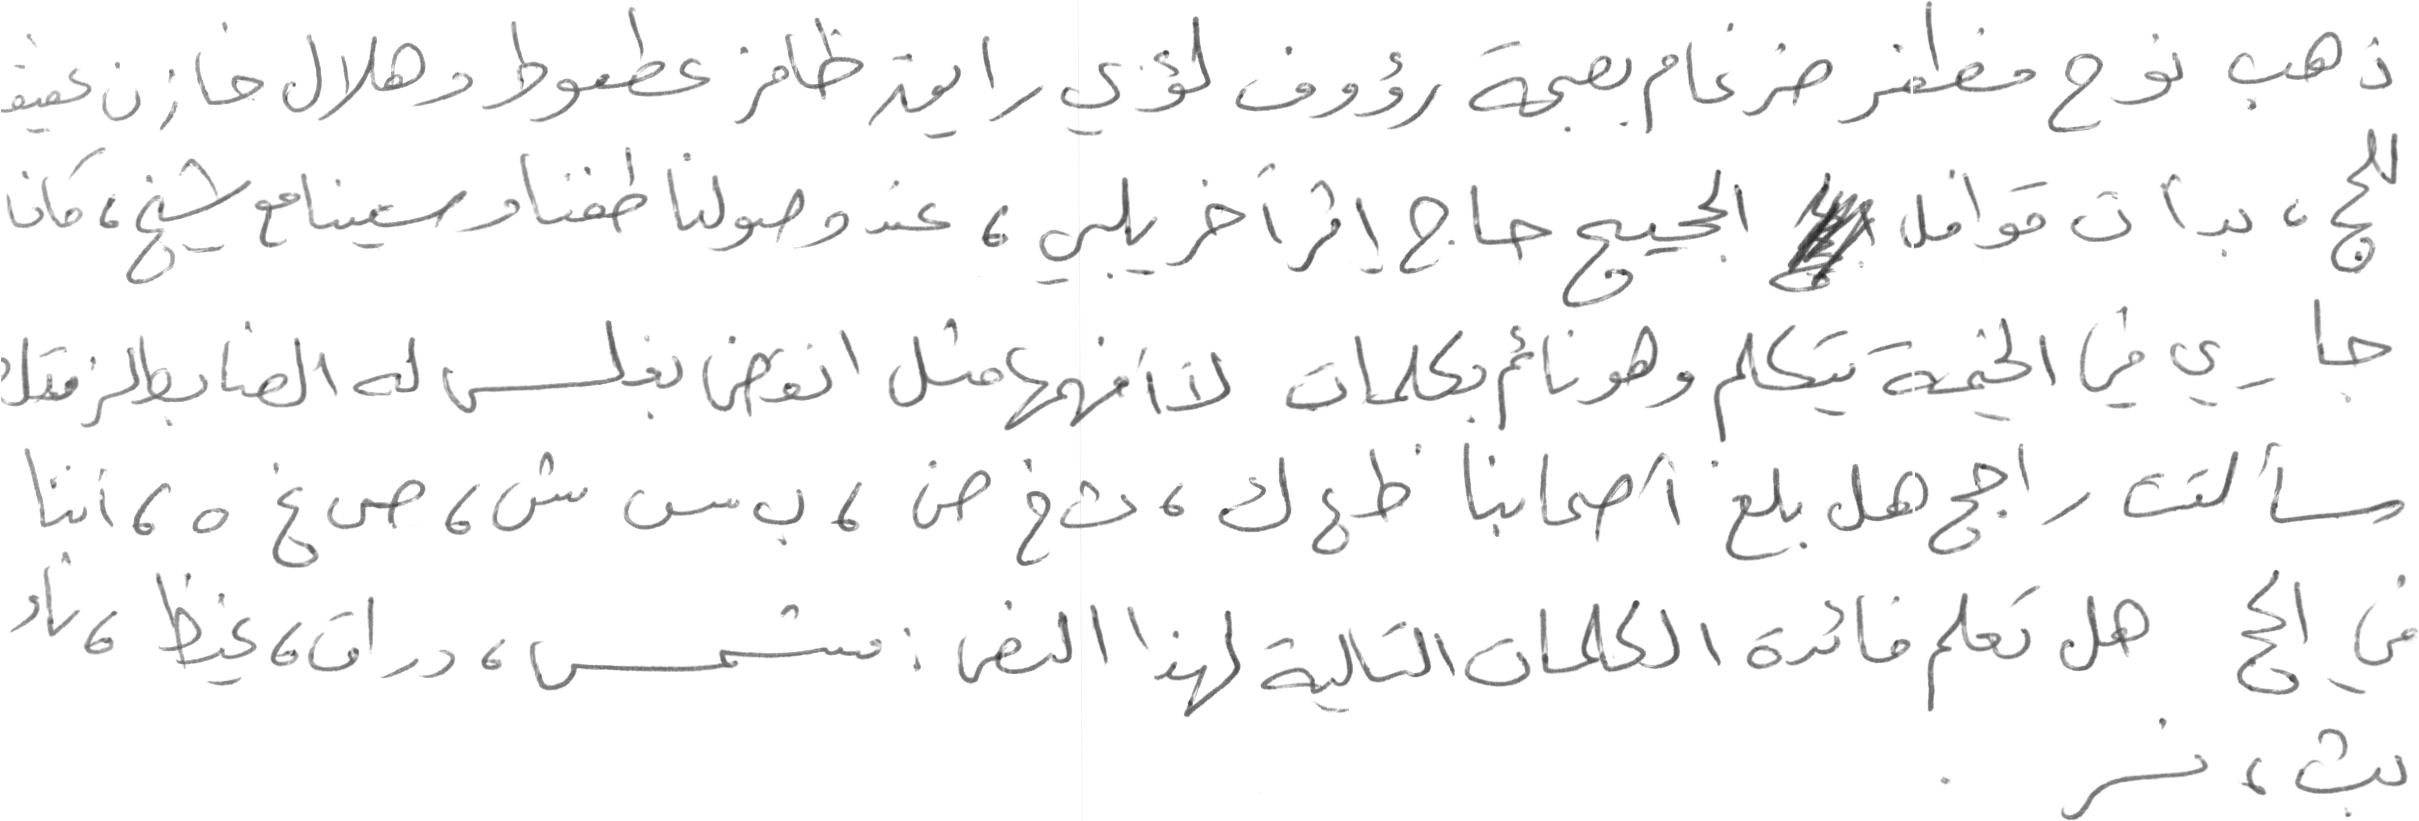 ذهب نوح مظفر ضرغام بصحبة رؤوف لؤي رايق ظافر عطعوط وهلال خازن عفيف
للحج، بدأت قوافل الحجيج حاج إثر آخر يلبي، عند وصولنا طفنا وسعينا مع شيخ، كان
جاري في الخيمة يتكلم وهو نائم بكلمات لا أفهمها مثل انقض بغلس له الضابط
سألت راجح هل بلغ أصحابنا ظ ع ك، ث خ ض، ب س ش، ص غ ه، أننا
في الحج هل تعلم فائدة الكلمات التالية لهذا النص: مشمس، دراق، غيظ،
بث، نسر.